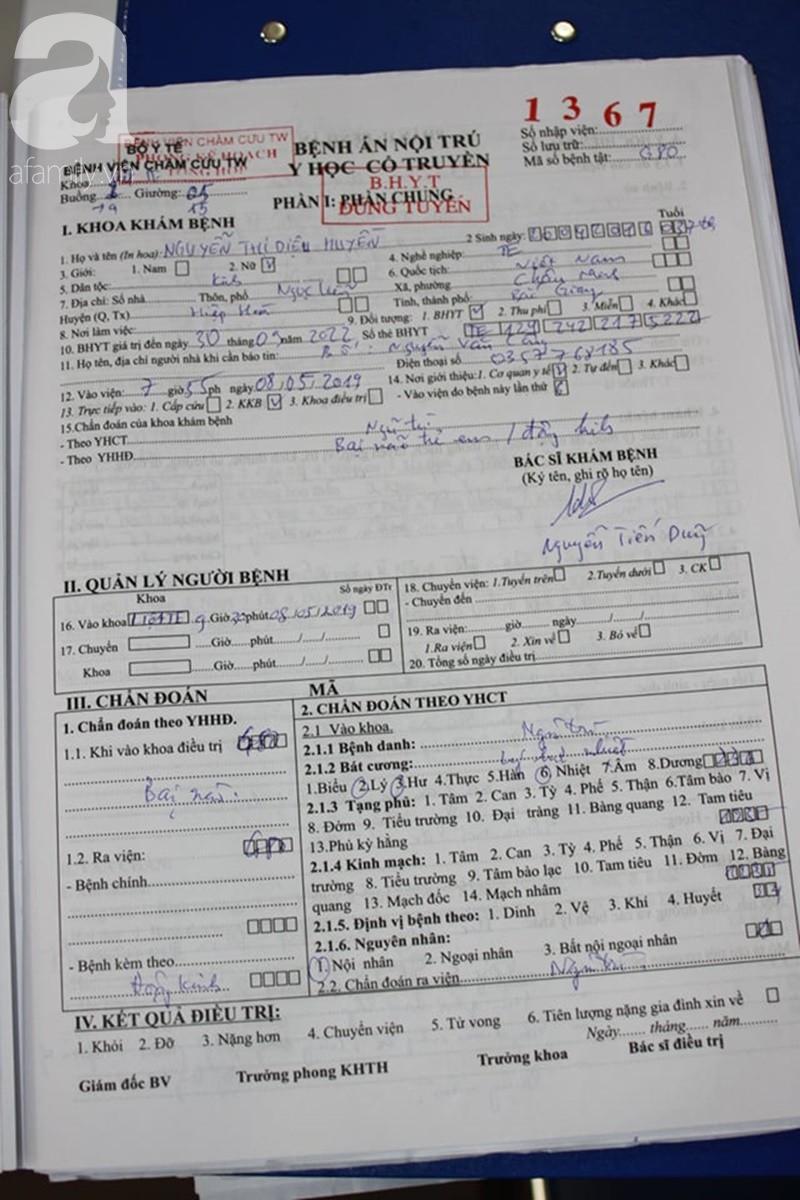 a
afamily.vn
1367
BỘ Y TẾ
BỆNH VIỆN CHÂM CỨU TW
BỆNH VIỆN CHÂM CỨU TW
BỆNH ÁN NỘI TRÚ
Y HỌC CỔ TRUYỀN
Số nhập viện:
Số lưu trữ:
Mã số bệnh tật: G80
Khoa
Buồng Giường: 05
B.H.Y.T
ĐÚNG TUYẾN
PHẦN I: PHẦN CHUNG
I. KHOA KHÁM BỆNH
Tuổi
1. Họ và tên (In hoa): NGUYỄN THỊ DIỆU HUYỀN 2 Sinh ngày:
3. Giới: 1. Nam 2. Nữ 4. Nghề nghiệp: TE
5. Dân tộc: Kinh 6. Quốc tịch: Việt Nam
7. Địa chỉ: Số nhà Thôn, phố Xã, phường Châu Minh
Huyện (Q, Tx) Hiệp Hoà Tỉnh, thành phố: Bắc Giang
8. Nơi làm việc: 9. Đối tượng: 1. BHYT 2. Thu phí 3. Miễn 4. Khác
10. BHYT giá trị đến ngày 30 tháng 09 năm 2022 Số thẻ BHYT TE 124 242 217 5222
11. Họ tên, địa chỉ người nhà khi cần báo tin: Bố: Nguyễn Văn
Điện thoại số 0357768185
12. Vào viện: 7 giờ 55 ph ngày 08/05/2019 14. Nơi giới thiệu: 1. Cơ quan y tế 2. Tự đến 3. Khác
13. Trực tiếp vào: 1. Cấp cứu 2. KKB 3. Khoa điều trị - Vào viện do bệnh này lần thứ 6
15.Chẩn đoán của khoa khám bệnh
- Theo YHCT Ngũ trì
- Theo YHHĐ Bại não trẻ em / động kinh
BÁC SĨ KHÁM BỆNH
(Ký tên, ghi rõ họ tên)
Nguyễn Tiến Dũng
II. QUẢN LÝ NGƯỜI BỆNH
Khoa Số ngày ĐTr
16. Vào khoa 9 Giờ 30 phút 08/05/2019
17. Chuyển Giờ phút / /
Khoa Giờ phút / /
18. Chuyển viện: 1.Tuyến trên 2.Tuyến dưới 3. CK
- Chuyển đến
19. Ra viện: giờ ngày / /
1.Ra viện 2. Xin về 3. Bỏ về
20. Tổng số ngày điều trị
III. CHẨN ĐOÁN MÃ
1. Chẩn đoán theo YHHĐ.
1.1. Khi vào khoa điều trị G80
Bại não
1.2. Ra viện:
- Bệnh chính
- Bệnh kèm theo
Động kinh
2. CHẨN ĐOÁN THEO YHCT
2.1 Vào khoa.
2.1.1 Bệnh danh: Ngũ trì
2.1.2 Bát cương:
1.Biểu 2.Lý 3.Hư 4.Thực 5.Hàn 6.Nhiệt 7.Âm 8.Dương
2.1.3 Tạng phủ: 1. Tâm 2. Can 3. Tỳ 4. Phế 5. Thận 6.Tâm bào 7. Vị
8. Đởm 9. Tiểu trường 10. Đại tràng 11. Bàng quang 12. Tam tiêu
13.Phủ kỳ hằng
2.1.4 Kinh mạch: 1. Tâm 2. Can 3. Tỳ 4. Phế 5. Thận 6. Vị 7. Đại
trường 8. Tiểu trường 9. Tâm bào lạc 10. Tam tiêu 11. Đởm 12. Bàng
quang 13. Mạch đốc 14. Mạch nhâm
2.1.5. Định vị bệnh theo: 1. Dinh 2. Vệ 3. Khí 4. Huyết
2.1.6. Nguyên nhân:
1. Nội nhân 2. Ngoại nhân 3. Bất nội ngoại nhân
2.2. Chẩn đoán ra viện Ngũ trì
IV. KẾT QUẢ ĐIỀU TRỊ:
1. Khỏi 2. Đỡ 3. Nặng hơn 4. Chuyển viện 5. Tử vong 6. Tiên lượng nặng gia đình xin về
Ngày tháng năm
Giám đốc BV Trưởng phòng KHTH Trưởng khoa Bác sĩ điều trị